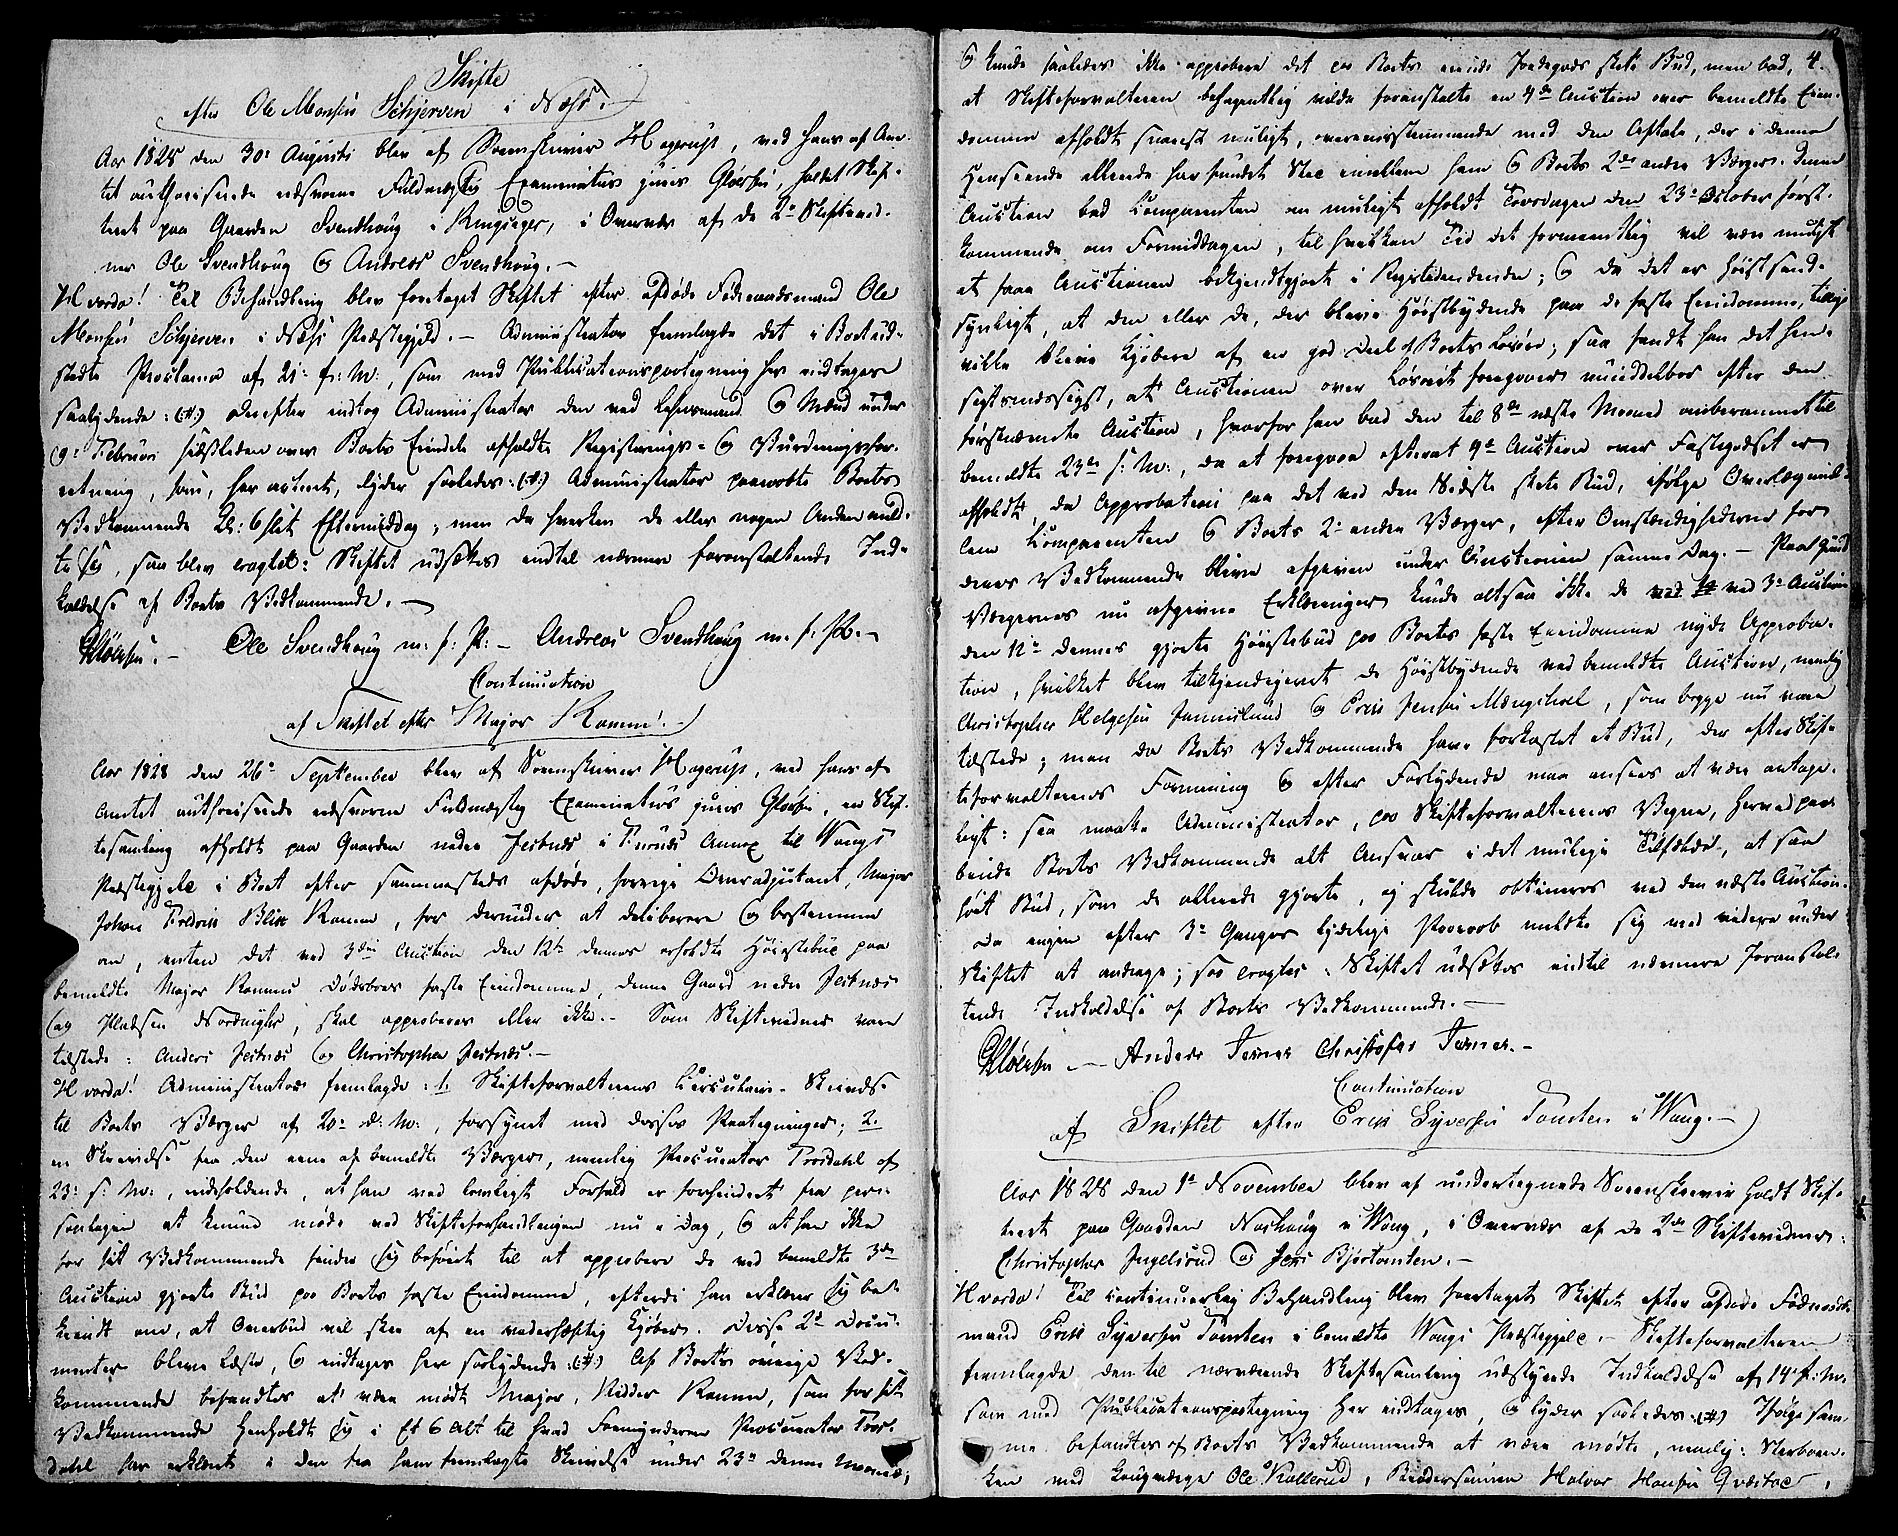 Skifte
efter Ole Monsen Schjerven i Næss.
Aar 1828 den 30te Augusti blev af Sorenskriver Hagerup, ved hans af Am-
tet authoriserede edsvorne Fuldmægtig Examinatus juris Gløersen, holdet Skif-
teret paa Gaarden Svendhoug i Ringsager, i Overvær af de 2de Skiftevid-
ner Ole Svendhoug og Andreas Svendhoug.-
Hvorda! Til Behandling blev foretaget Skiftet efter afdøde Føderaadsmand Ole
Monsen Schjerven i Næss Præstegjeld.- Administrator fremlagde det i Boet ud-
stædte Proclama af 21de f: M:, som med Publicationspaategning her indtages
saalydende: (#:) derefter indtog Administrator den ved Lehnsmand og Mænd under
9de Februari sidstleden over Boets Eiendele afholdte Registrerings- og Vurderingsfor-
retning, som, her acteret, lyder saaledes: (#:) Administrator paaraabte Boets
Vedkommende Kl: 6 slet Eftermiddag; men da hverken de eller nogen Anden meld-
te sig, saa blev eragtet: Skiftet udsættes indtil nærmere foranstaltende Ind-
kaldelse af Boets Vedkommende.-
Gløersen.- Ole Svendhoug m. f. P.- Andreas Svendhoug m. f. P.-
Continuation
af Skiftet efter Major Ramm.-
Aar 1828 den 26de September blev af Sorenskriver Hagerup, ved hans af
Amtet authoriserede edsvorne Fuldmægtig Examinatus juris Gløersen, en Skif-
tesamling afholdt paa Gaarden nedre Jesnæs i Furnæs Annex til Wangs
Præstegjeld i Boet efter sammesteds afdøde, forrige Overadjutant, Major
Johan Fredrik Blix Ramm, for derunder at deliberere og bestemme
om, enten det ved 3die Auction den 12te dennes erholdte Høiestebud paa
bemeldte Major Ramms Dødsboes faste Eiendomme, denne Gaard nedre Jesnæs
og Pladsen Nordvigen, skal approberes eller ikke.- Som Skiftevidner vare
tilstede: Anders Jesnæs og Christopher Jesnæs.-
Hvorda! Administrator fremlagde: 1. Skifteforvalterens Circulaire-Skrivelse
til Boets Værger af 20de d: M:, forsynet med disses Paategninger; 2.
en Skrivelse fra den ene af bemeldte Værger, nemlig Procurator Trosdahl af
23de s: M:, indeholdende, at han ved lovligt Forfald er forhindret fra per-
sonligen at kunne møde ved Skifteforhandlingen nu i Dag, og at han ikke
for sit Vedkommende finder sig beføiet til at approbere de ved bemeldte 3die
Auction gjorte Bud paa Boets faste Eiendomme, efterdi han erklærer sig be-
kiendt om, at Overbud vil skee af en vederhæftig Kjøber. Disse 2de Docu-
menter bleve læste, og indtages her saalydende (#:) Af Boets øvrige Ved-
kommende befandtes at være mødt Major, Ridder Ramm, som for sit
Vedkommende henholdt sig i Et og Alt til hvad Formynderen Procurator Tros-
dahl har erklæret i den fra ham fremlagte Skrivelse under 23de denne Maaned,
4.
og kunde saaledes ikke approbere det paa Boets eiende Jordegods skete Bud, men bad,
at Skifteforvalteren behagentlig vilde foranstalte en 4de Auction over bemeldte Eien-
domme afholdt snarest muligt, overeensstemmende med den Aftale, der i denne
Henseende allerede har fundet Sted imellem ham og Boets 2de andre Værger. Denne
Auction bad Comparenten om muligt afholdt Torsdagen den 23de October først-
kommende om Formiddagen, til hvilken Tid det formeentlig vil være muligt
at faae Auctionen bekjendtgjort i Rigstidendende; og da det er høist sand-
synligt, at den eller de, der blive Høistbydende paa de faste Eiendomme, tillige
ville blive Kjøbere af en god Deel af Boets Løsøre; saa fandt han det hen-
sigtsmæssigst, at Auctionen over Løsøret foregaaer umiddelbar efter den
førstnævnte Auction, hvorfor han bad den til 8de næste Maaned omberammet til
bemeldte 23de s: M:, da at foregaae efterat 4de Auction over Fastegodset er
afholdt, da Approbation paa det ved den Sidste skete Bud, ifølge Overlæg imel-
lem Comparenten og Boets 2de andre Værger, efter Omstændighederne for-
denes Vedkommende bliver afgiven under Auctionen samme Dag.- Paa Grund
Værgernes nu afgivne Erklæringer kunde altsaa ikke de ved 3die Auction
den 12te dennes gjorte Høiestebud paa Boets faste Eiendomme nyde Approba-
tion, hvilket blev tilkjendegivet de Høistbydende ved bemeldte Auction, nemlig
Christopher Helgesen Jemislund og Erik Jensen Mengshoel, som begge nu vare
tilstede; men da Boets Vedkommende have forkastet et Bud, der efter Skif-
teforvalterens Formening og efter Forlydende maa ansees at være antage-
ligt: saa maatte Administrator, paa Skifteforvalterens Vegne, herved paa-
bende Boets Vedkommende alt Ansvar i det mulige Tilfælde, at saa
høit Bud, som de allerede gjorte, ej skulde obtineres ved den næste Auction.
Da ingen efter 3de Ganges lydelige Paaraab meldte sig med videre under
Skiftet at andrage; saa eragtes: Skiftet udsættes indtil nærmere foranstal-
tende Indkaldelse af Boets Vedkommende.-
Gløersen.- Anders Jesnes Christofer Jesnes.-
Continuation
af Skiftet efter Erik Syversen Tomten i Wang.-
Aar 1828 den 1te November blev af undertegnede Sorenskriver holdt Skif-
teret paa Gaarden Norhoug i Wang, i Overvær af de 2de Skiftevidner:
Christopher Ingelsrud og Jens Bjørtomten.-
Hvorda! Til continuerlig Behandling blev foretaget Skiftet efter afdøde Føderaads-
mand Erik Syversen Tomten i bemeldte Wangs Præstegjeld.- Skifteforvalteren
fremlagde den til nærværende Skiftesamling udstædte Indkaldelse af 14de f. M.
som med Publicationspaategning her indtages, og lyder saaledes: (#:) Ifølge sam-
me befandtes af Boets Vedkommende at være mødte, nemlig: Sterboen-
ken med Laugværge Ole Kallerud, Brodersønnen Halvor Hansen Qværtoe,